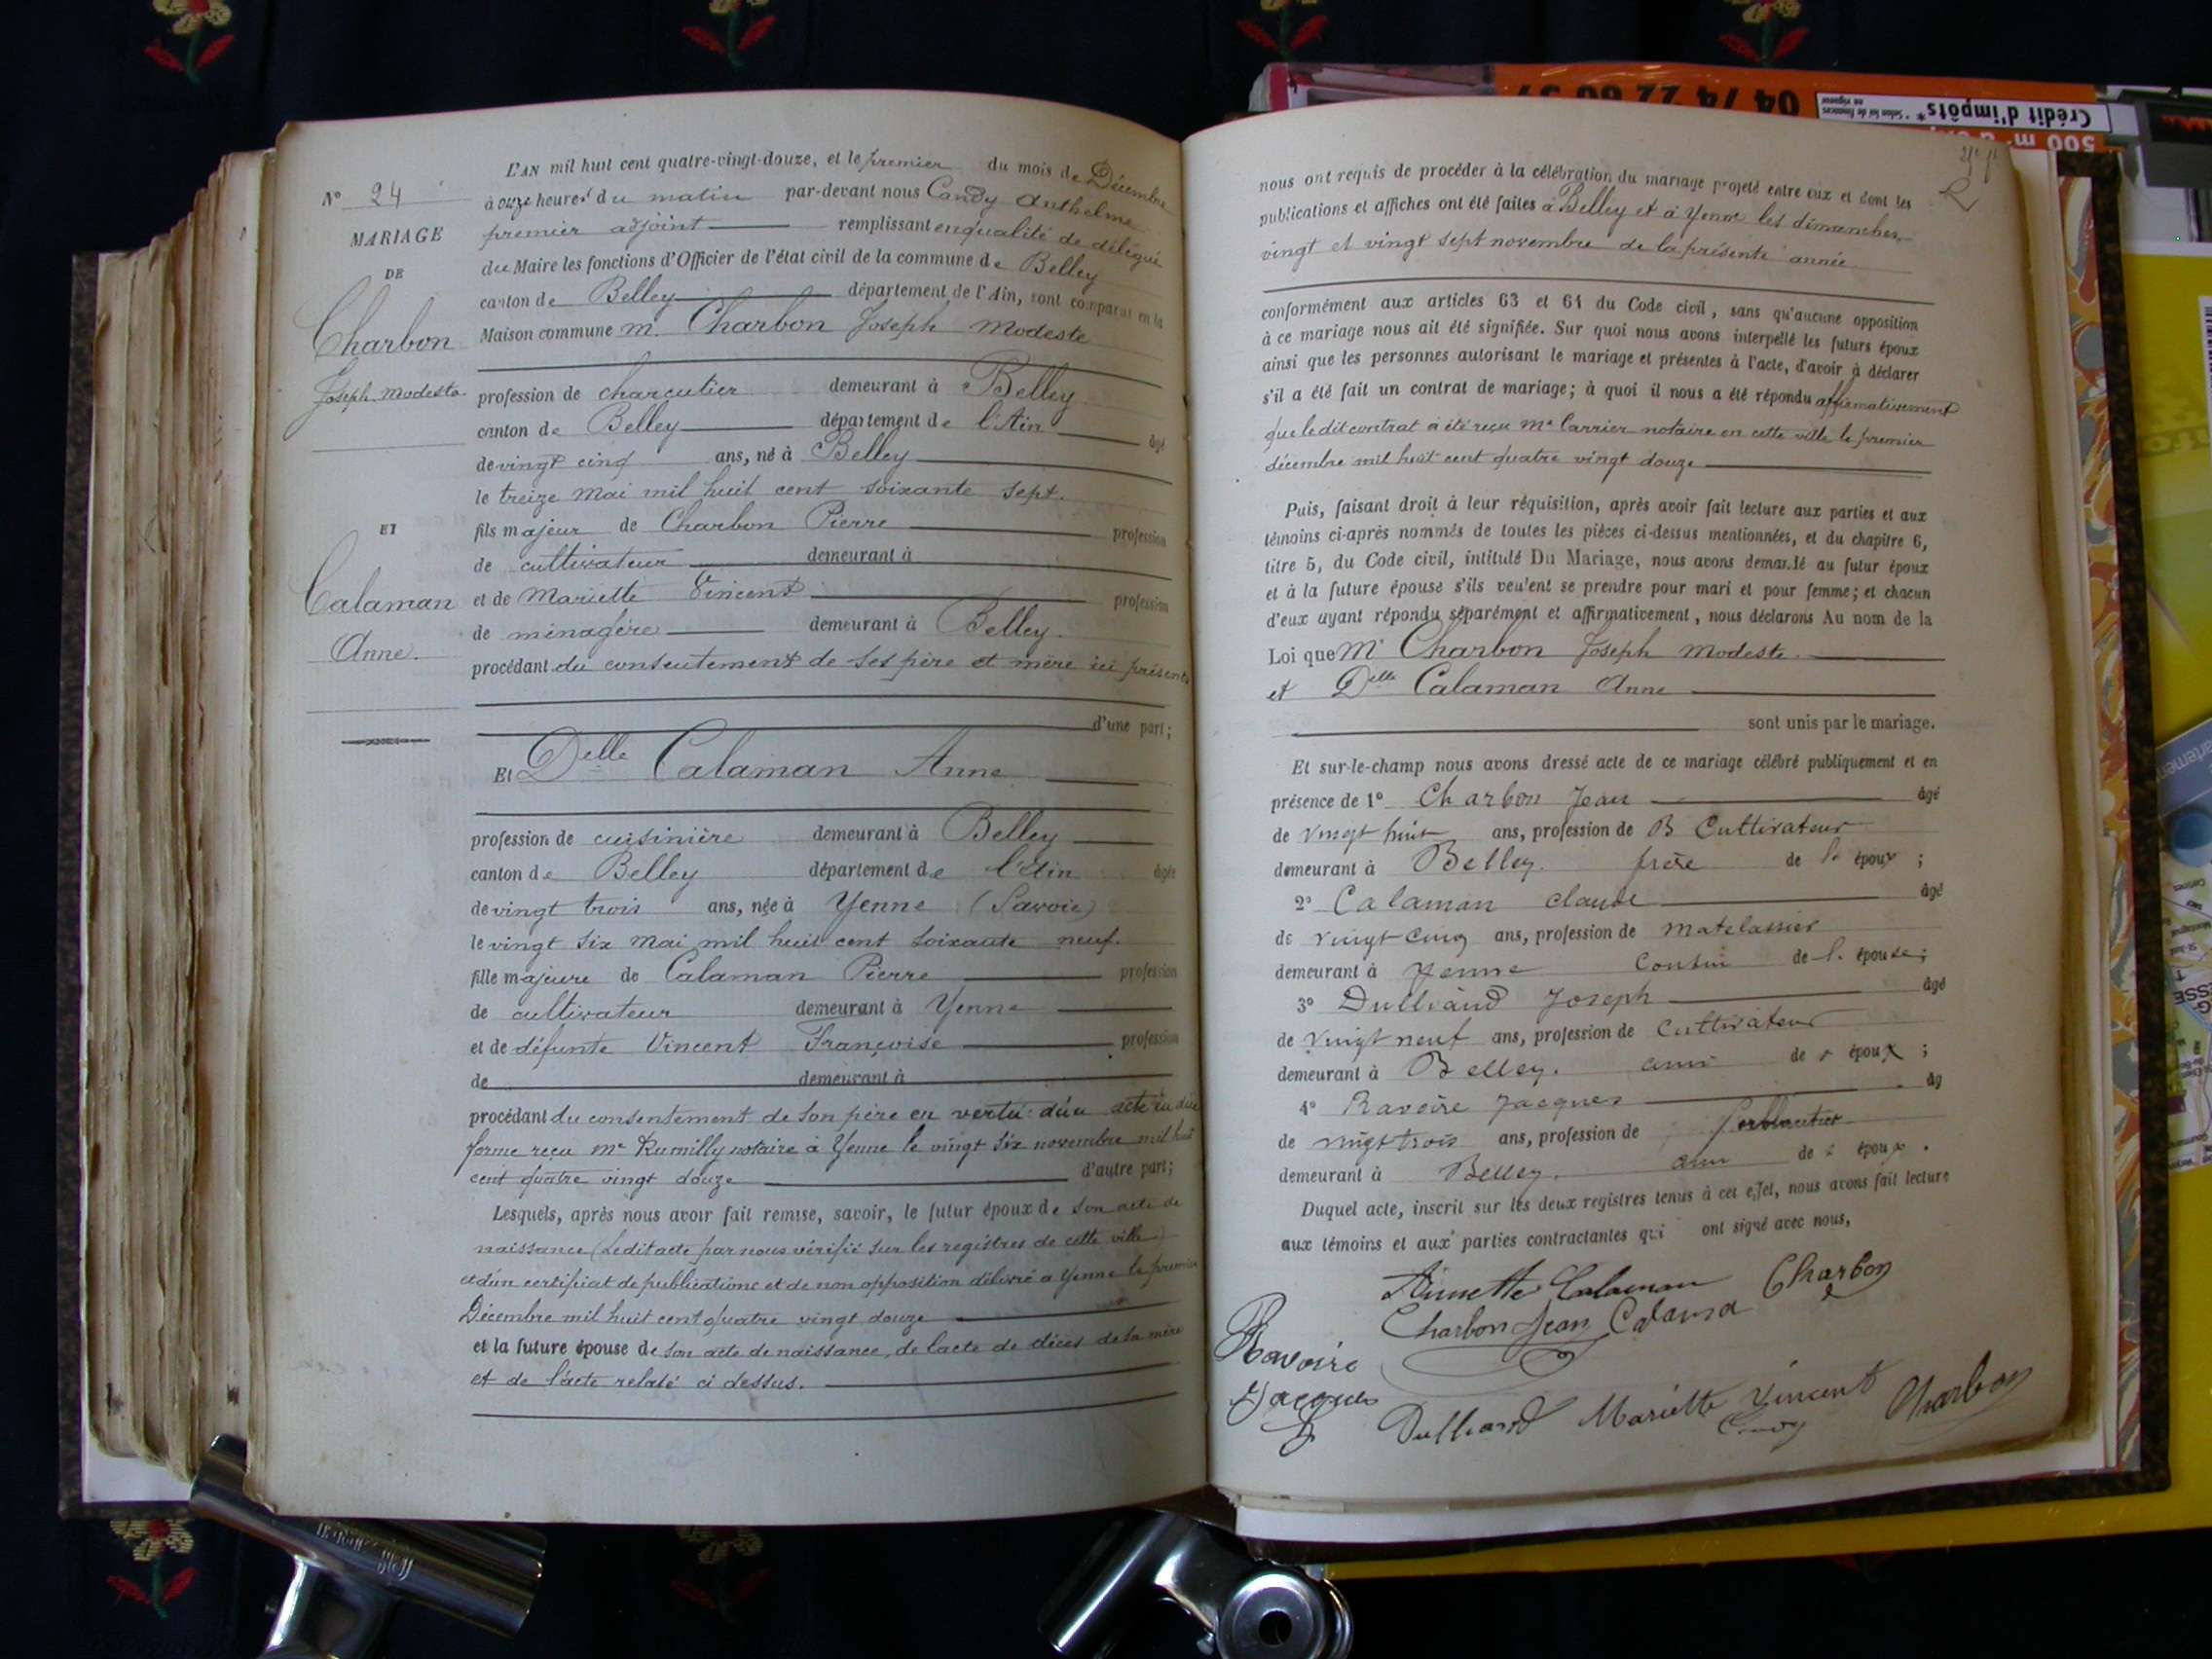 N° 24
MARIAGE
DE
Charbon
Joseph Modeste
ET
Calaman
Anne.
L'AN mil huit cent quatre-vingt-douze, et le premier du mois de Décembre
à onze heures du matin par-devant nous Candy Anthelme
premier adjoint remplissant en qualité de délégué
du Maire les fonctions d'Officier de l'état civil de la commune de Belley
canton de Belley département de l'Ain, sont comparus en la
Maison commune M. Charbon Joseph Modeste
profession de charcutier demeurant à Belley
canton de Belley département de l'Ain âgé
de vingt cinq ans, né à Belley
le treize mai mil huit cent soixante sept.
fils majeur de Charbon Pierre profession
de cultivateur demeurant à
et de Mariette Vincent profession
de ménagère demeurant à Belley.
procédant du consentement de ses père et mère ici présents
d'une part;
Et Delle Calaman Anne
profession de cuisinière demeurant à Belley
canton de Belley département de l'Ain âgée
de vingt trois ans, née à Yenne (Savoie)
le vingt six mai mil huit cent soixante neuf.
fille majeure de Calaman Pierre profession
de cultivateur demeurant à Yenne
et de défunte Vincent Françoise profession
de demeurant à
procédant du consentement de son père en vertu d'un acte en due
forme reçu Me Rumilly notaire à Yenne le vingt six novembre mil huit
cent quatre vingt douze d'autre part;
Lesquels, après nous avoir fait remise, savoir, le futur époux de son acte de
naissance (ledit acte par nous vérifié sur les registres de cette ville)
et d'un certificat de publications et de non opposition délivré a Yenne le premier
Décembre mil huit cent quatre vingt douze
et la future épouse de son acte de naissance, de l'acte de décès de sa mère
et de l'acte relaté ci dessus.
nous ont requis de procéder à la célébration du mariage projeté entre eux et dont les
publications et affiches ont été faites à Belley et à Yenne les dimanches
vingt et vingt sept novembre de la présente année
conformément aux articles 63 et 64 du Code civil, sans qu'aucune opposition
à ce mariage nous ait été signifiée. Sur quoi nous avons interpellé les futurs époux
ainsi que les personnes autorisant le mariage et présentes à l'acte, d'avoir à déclarer
s'il a été fait un contrat de mariage; à quoi il nous a été répondu affirmativement
que le dit contrat a été reçu Me Carrier notaire en cette ville le premier
décembre mil huit cent quatre vingt douze
Puis, faisant droit à leur réquisition, après avoir fait lecture aux parties et aux
témoins ci-après nommés de toutes les pièces ci-dessus mentionnées, et du chapitre 6,
titre 5, du Code civil, intitulé Du Mariage, nous avons demandé au futur époux
et à la future épouse s'ils veulent se prendre pour mari et pour femme; et chacun
d'eux ayant répondu séparément et affirmativement, nous déclarons Au nom de la
Loi que Mr Charbon Joseph Modeste.
et Delle Calaman Anne
sont unis par le mariage.
Et sur-le-champ nous avons dressé acte de ce mariage célébré publiquement et en
présence de 1° Charbon Jean âgé
de vingt huit ans, profession de B Cultivateur
demeurant à Belley. frère de l' époux ;
2° Calaman claude âgé
de vingt cinq ans, profession de matelassier
demeurant à Yenne cousin de l' épouse;
3° Dulliand Joseph âgé
de vingt neuf ans, profession de Cultivateur
demeurant à Belley. ami de époux ;
4° Ravoire Jacques âg
de vingt trois ans, profession de ferblantier
demeurant à Belley. ami de époux .
Duquel acte, inscrit sur les deux registres tenus à cet effet, nous avons fait lecture
aux témoins et aux parties contractantes qui ont signé avec nous,
Annette Calaman Charbon
Charbon Jean
Ravoire
Jacques
Dulliand Mariette Vincent Charbon
Candy
04 74 22 60 57
Crédit d'impôts*